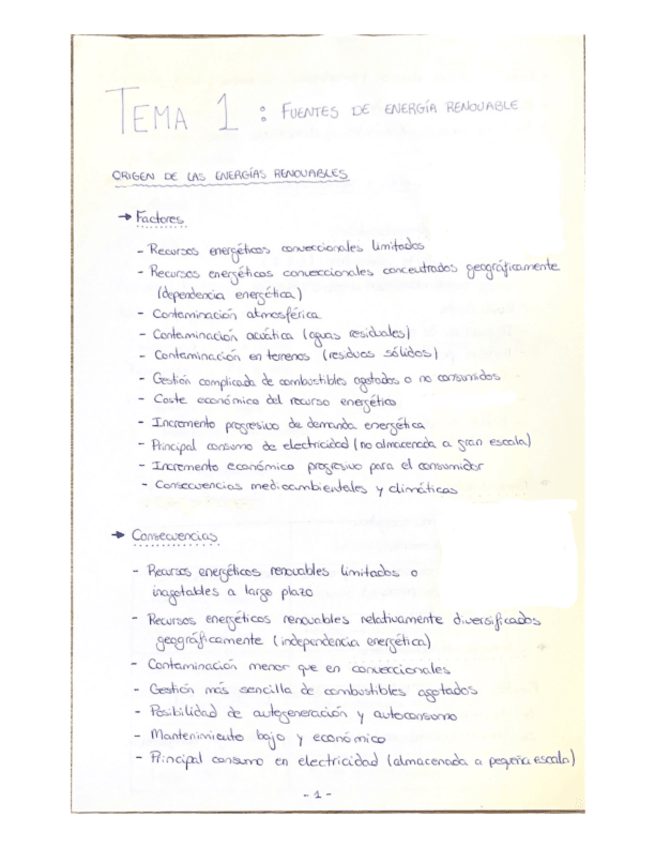 TEMA 1 : FUENTES DE ENERGÍA RENOVABLE
ORIGEN DE LAS ENERGÍAS RENOVABLES
→ Factores
- Recursos energéticos convencionales limitados
- Recursos energéticos convencionales concentrados geográficamente
(dependencia energética)
- Contaminación atmosférica
- Contaminación acuática (aguas residuales)
- Contaminación en terrenos (residuos sólidos)
- Gestión complicada de combustibles agotados o no consumidos
- Coste económico del recurso energético
- Incremento progresivo de demanda energética
- Principal consumo de electricidad (no almacenada a gran escala)
- Incremento económico progresivo para el consumidor
- Consecuencias medioambientales y climáticas
→ Consecuencias
- Recursos energéticos renovables limitados o
inagotables a largo plazo
- Recursos energéticos renovables relativamente diversificados
geográficamente (independencia energética)
- Contaminación menor que en convencionales
- Gestión más sencilla de combustibles agotados
- Posibilidad de autogeneración y autoconsumo
- Mantenimiento bajo y económico
- Principal consumo en electricidad (almacenada a pequeña escala)
- 1 -